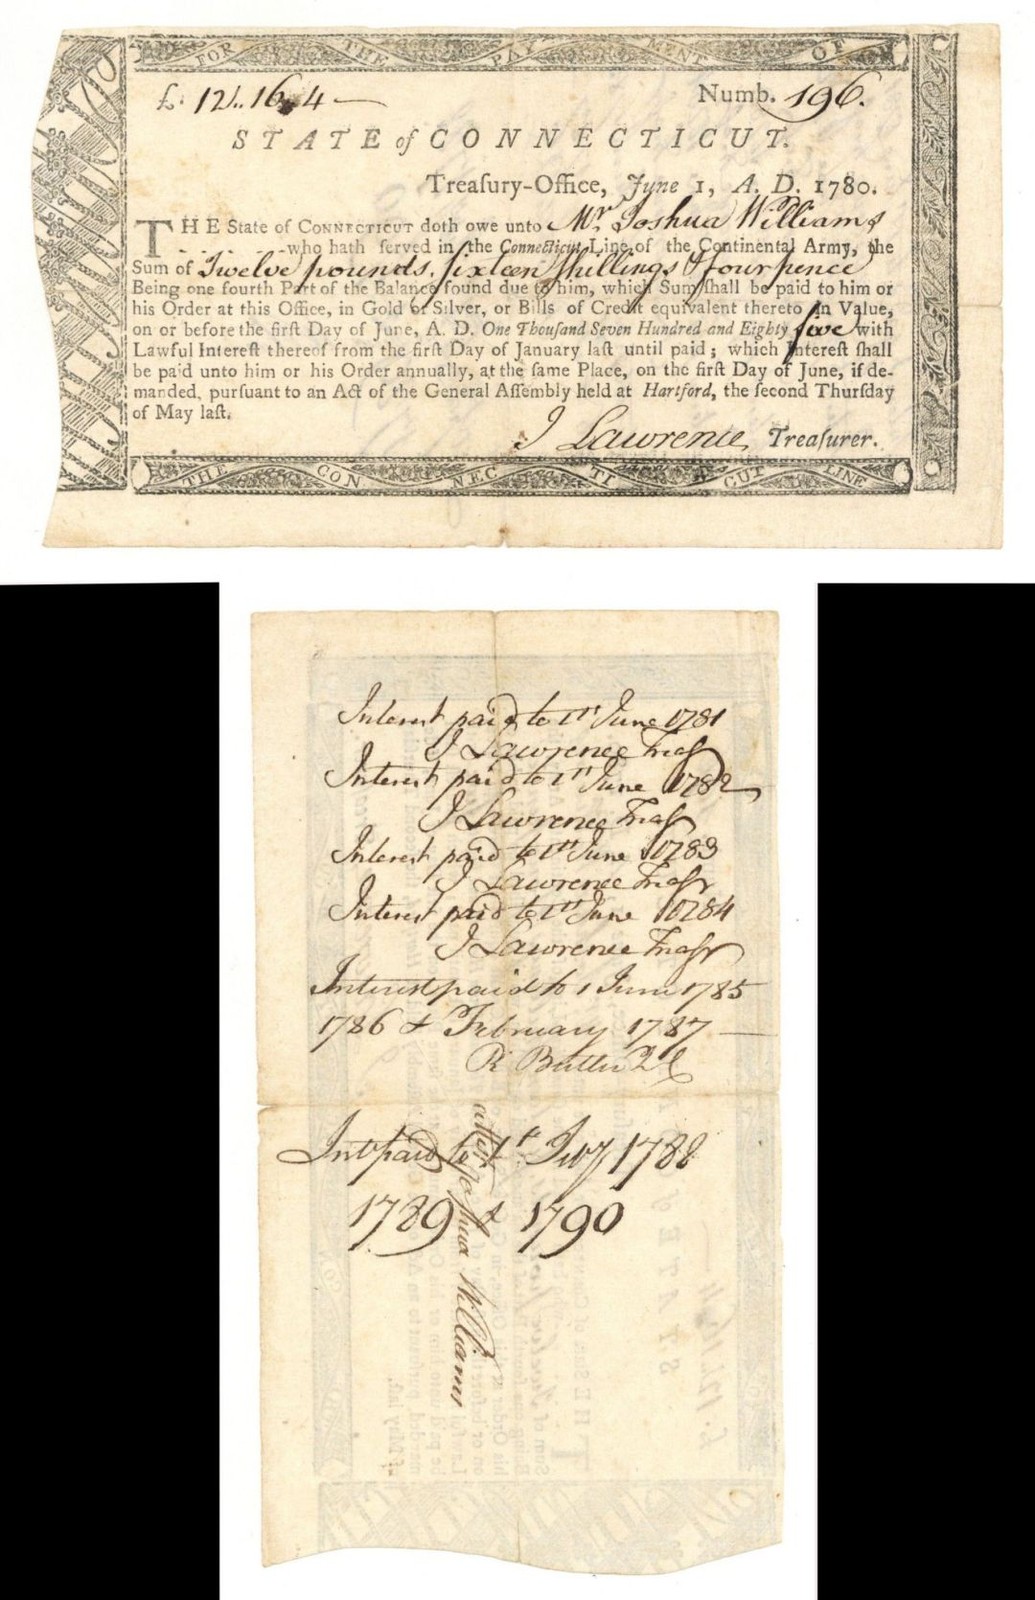 FOR THE PAY MENT OF
£. 12.. 16.. 4 — Numb. 196.
STATE of CONNECTICUT.
Treaſury-Office, June 1, A. D. 1780.
THE State of CONNECTICUT doth owe unto Mr. Joshua Williams
who hath ſerved in the Connecticut Line of the Continental Army, the
Sum of Twelve pounds, ſixteen ſhillings & four pence
Being one fourth Part of the Balance found due to him, which Sum ſhall be paid to him or
his Order at this Office, in Gold or Silver, or Bills of Credit equivalent thereto in Value,
on or before the firſt Day of June, A. D. One Thouſand Seven Hundred and Eighty five with
Lawful Intereſt thereof from the firſt Day of January laſt until paid; which Intereſt ſhall
be paid unto him or his Order annually, at the ſame Place, on the firſt Day of June, if de-
manded, purſuant to an Act of the General Aſſembly held at Hartford, the ſecond Thurſday
of May laſt.
J Lawrence Treaſurer.
THE CON NEC TI CUT LINE
Interest paid to 1st June 1781
J Lawrence Treasr
Interest paid to 1st June 1782
J Lawrence Treasr
Interest paid to 1st June 1783
J Lawrence Treasr
Interest paid to 1st June 1784
J Lawrence Treasr
Interest paid to 1 June 1785
1786 & February 1787 —
R Butler
Int paid to 1st 1788
1789 & 1790
attest Joshua Williams